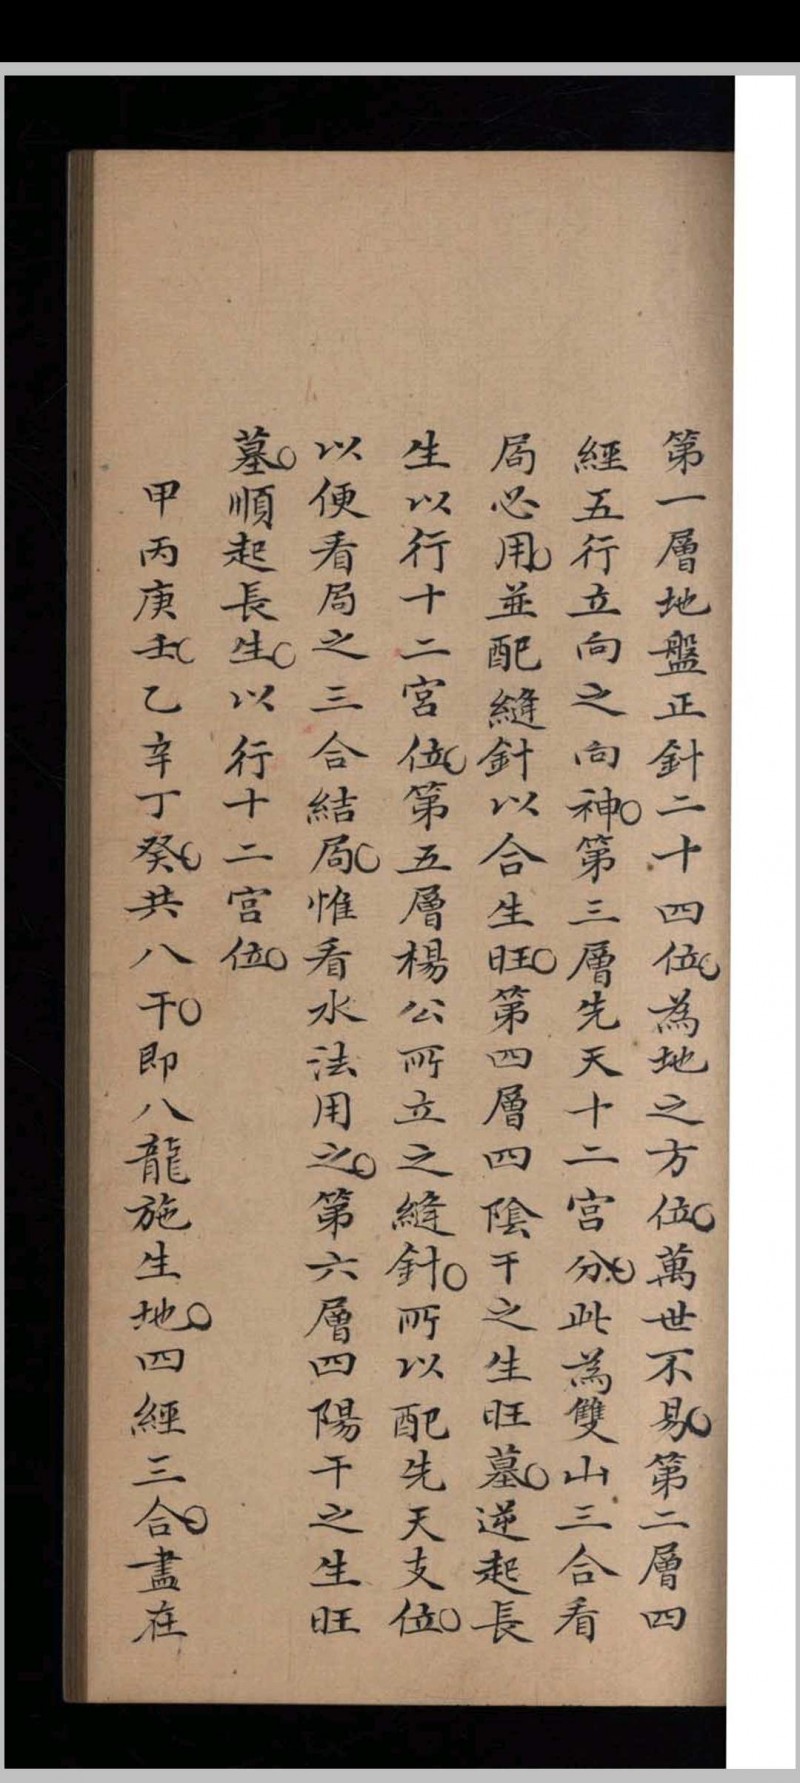 第一層地盤正針二十四位為地之方位萬世不易第二層四
經五行立向之向神第三層先天十二宮分此為雙山三合看
局必用並配縫針以合生旺第四層四陰干之生旺墓逆起長
生以行十二宮位第五層楊公所立之縫針所以配先天支位
以便看局之三合結局惟看水法用之第六層四陽干之生旺
墓順起長生以行十二宮位
甲丙庚壬乙辛丁癸共八干即八龍施生地四經三合盡在